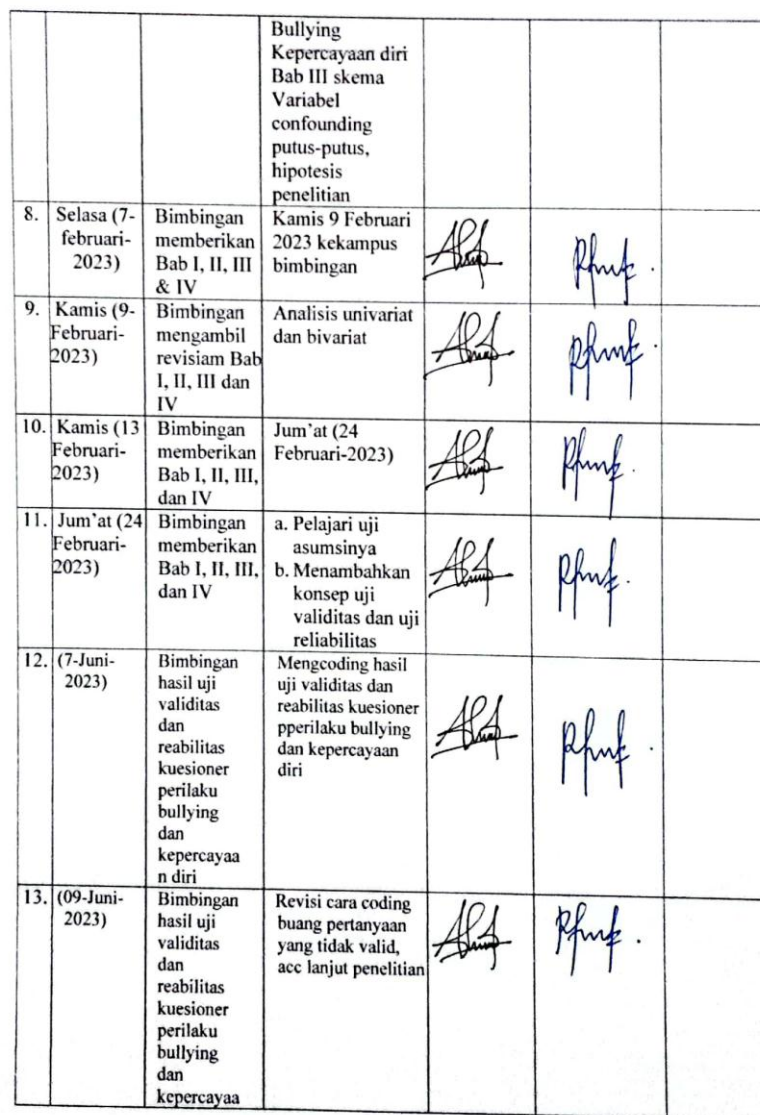 Bullying
Kepercayaan diri
Bab III skema
Variabel
confounding
putus-putus,
hipotesis
penelitian
8.
Selasa (7-
februari-
2023)
Bimbingan
memberikan
Bab I, II, III
& IV
Kamis 9 Februari
2023 kekampus
bimbingan
9.
Kamis (9-
Februari-
2023)
Bimbingan
mengambil
revisiam Bab
I, II, III dan
IV
Analisis univariat
dan bivariat
10.
Kamis (13
Februari-
2023)
Bimbingan
memberikan
Bab I, II, III,
dan IV
Jum'at (24
Februari-2023)
11.
Jum'at (24
Februari-
2023)
Bimbingan
memberikan
Bab I, II, III,
dan IV
a. Pelajari uji
asumsinya
b. Menambahkan
konsep uji
validitas dan uji
reliabilitas
12.
(7-Juni-
2023)
Bimbingan
hasil uji
validitas
dan
reabilitas
kuesioner
perilaku
bullying
dan
kepercayaa
n diri
Mengcoding hasil
uji validitas dan
reabilitas kuesioner
pperilaku bullying
dan kepercayaan
diri
13.
(09-Juni-
2023)
Bimbingan
hasil uji
validitas
dan
reabilitas
kuesioner
perilaku
bullying
dan
kepercayaa
Revisi cara coding
buang pertanyaan
yang tidak valid,
acc lanjut penelitian